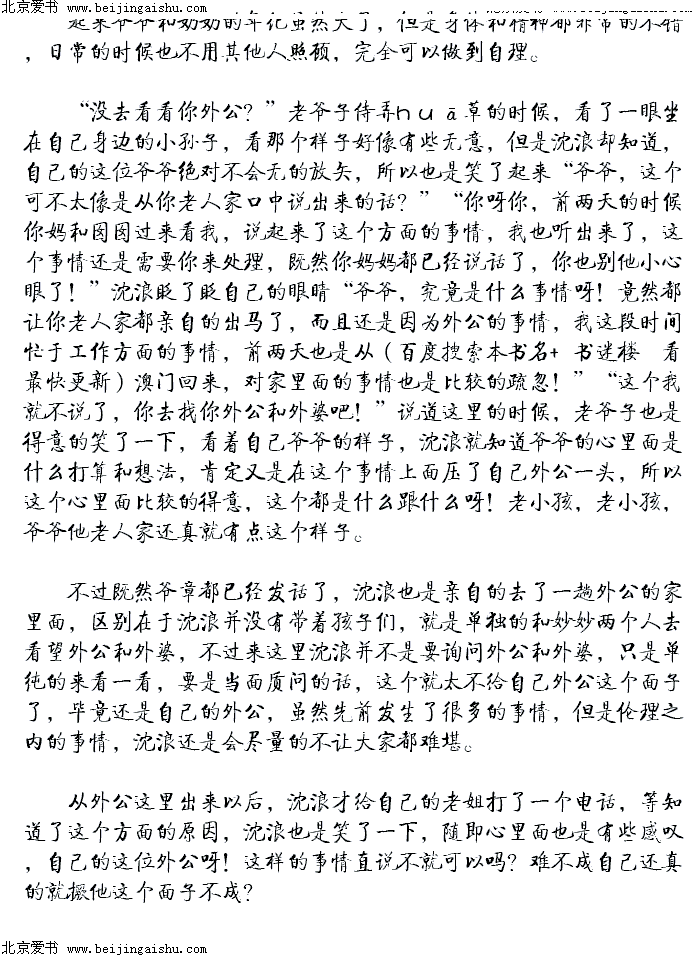 北京爱书 www.beijingaishu.com
起来爷爷和奶奶的年纪虽然大了，但是身体和精神都非常的不错
，日常的时候也不用其他人照顾，完全可以做到自理。
“没去看看你外公？”老爷子侍弄huā草的时候，看了一眼坐
在自己身边的小孙子，看那个样子好像有些无意，但是沈浪却知道，
自己的这位爷爷绝对不会无的放矢，所以也是笑了起来“爷爷，这个
可不太像是从你老人家口中说出来的话？”“你呀你，前两天的时候
你妈和囡囡过来看我，说起来了这个方面的事情，我也听出来了，这
个事情还是需要你来处理，既然你妈妈都已经说话了，你也别他小心
眼了！”沈浪眨了眨自己的眼睛“爷爷，究竟是什么事情呀！竟然都
让你老人家都亲自的出马了，而且还是因为外公的事情，我这段时间
忙于工作方面的事情，前两天也是从（百度搜索本书名+ 书迷楼 看
最快更新）澳门回来，对家里面的事情也是比较的疏忽！”“这个我
就不说了，你去找你外公和外婆吧！”说道这里的时候，老爷子也是
得意的笑了一下，看着自己爷爷的样子，沈浪就知道爷爷的心里面是
什么打算和想法，肯定又是在这个事情上面压了自己外公一头，所以
这个心里面比较的得意，这个都是什么跟什么呀！老小孩，老小孩，
爷爷他老人家还真就有点这个样子。
不过既然爷章都已经发话了，沈浪也是亲自的去了一趟外公的家
里面，区别在于沈浪并没有带着孩子们，就是单独的和妙妙两个人去
看望外公和外婆，不过来这里沈浪并不是要询问外公和外婆，只是单
纯的来看一看，要是当面质问的话，这个就太不给自己外公这个面子
了，毕竟还是自己的外公，虽然先前发生了很多的事情，但是伦理之
内的事情，沈浪还是会尽量的不让大家都难堪。
从外公这里出来以后，沈浪才给自己的老姐打了一个电话，等知
道了这个方面的原因，沈浪也是笑了一下，随即心里面也是有些感叹
，自己的这位外公呀！这样的事情直说不就可以吗？难不成自己还真
的就撅他这个面子不成？
北京爱书 www.beijingaishu.com